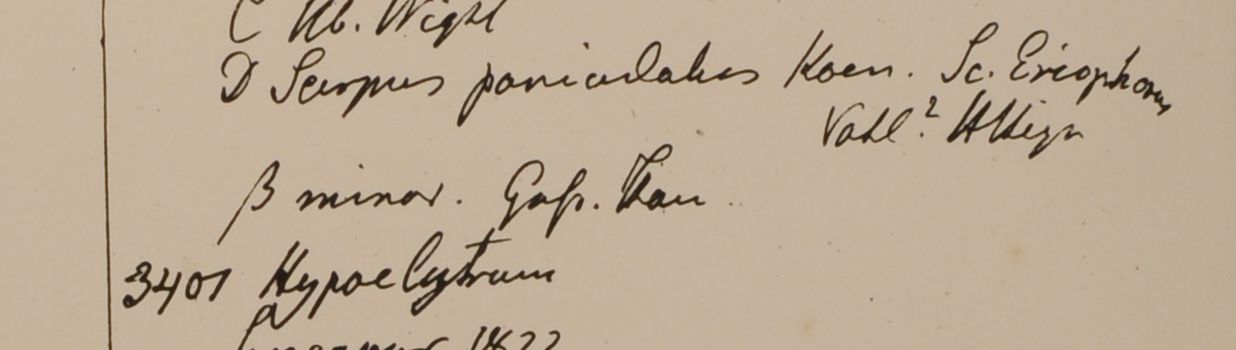 C Hb. Wight
D Scirpus paniculatus Koen. Sc. Eriophorus
Vahl?
β minor.
3401 Hypoelytrum
1822